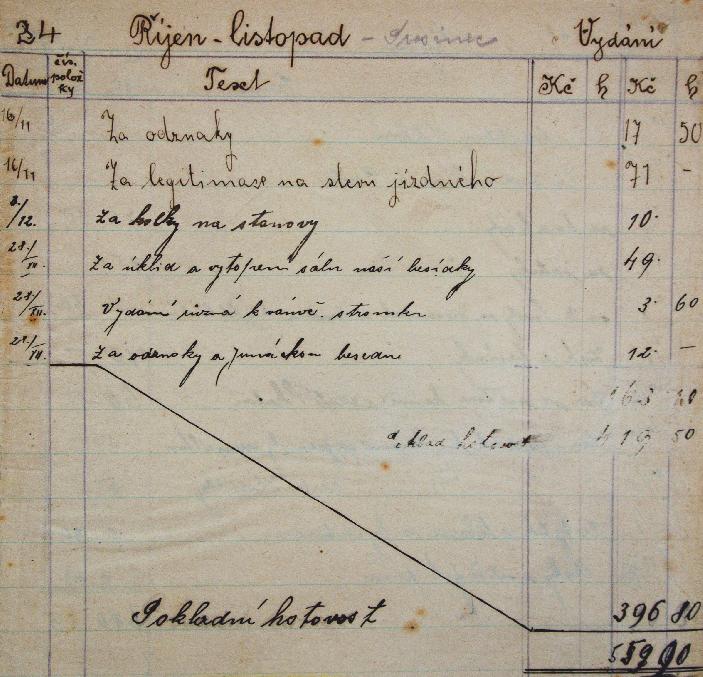 24 Říjen - listopad - Prosinec Vydání
Datum čís. polož ky Text Kč h Kč h
16/11 Za odznaky 17 50
16/11 Za legitimase na slevu jízdného 71 -
8./12. Za kolky na stanovy 10.
28./XII. Za úklid a vytopení sálu naší besídky 49.
28/XII. Vydání různá k vánoč. stromku 3. 60
28./XII. Za odznaky a junáckou besedu 12. -
Poklad hotovost 419 50
Pokladní hotovost 396 80
559 90